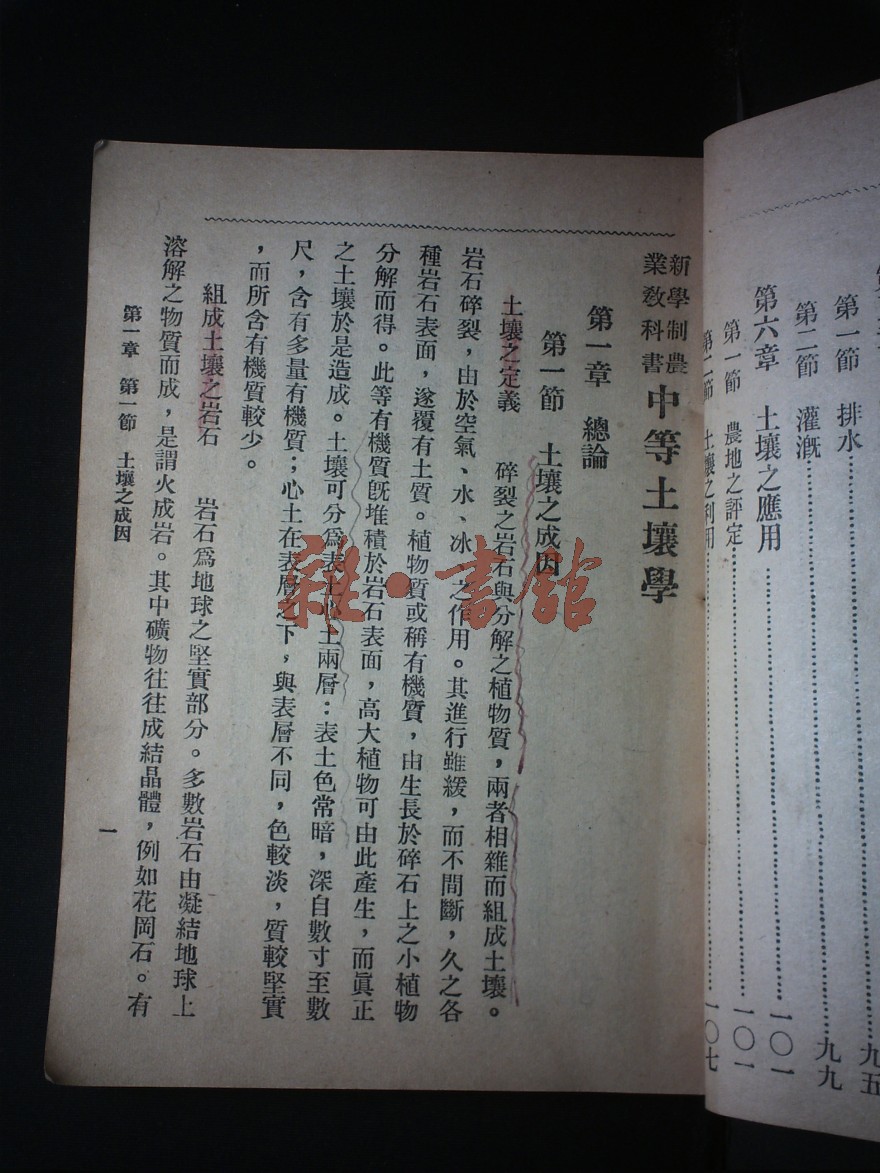 第一節 排水……九五
第二節 灌漑……九九
第六章 土壤之應用……一〇一
第一節 農地之評定……一〇一
第二節 土壤之利用……一〇七
新學制農業教科書 中等土壤學
第一章 總論
第一節 土壤之成因
土壤之定義 碎裂之岩石與分解之植物質，兩者相雜而組成土壤。
岩石碎裂，由於空氣、水、冰、之作用。其進行雖緩，而不間斷，久之各
種岩石表面，遂覆有土質。植物質或稱有機質，由生長於碎石上之小植物
分解而得。此等有機質旣堆積於岩石表面，高大植物可由此產生，而眞正
之土壤於是造成。土壤可分爲表土心土兩層：表土色常暗，深自數寸至數
尺，含有多量有機質；心土在表層之下，與表層不同，色較淡，質較堅實
，而所含有機質較少。
組成土壤之岩石 岩石爲地球之堅實部分。多數岩石由凝結地球上
溶解之物質而成，是謂火成岩。其中礦物往往成結晶體，例如花岡石。有
第一章 第一節 土壤之成因
一
雜·書館